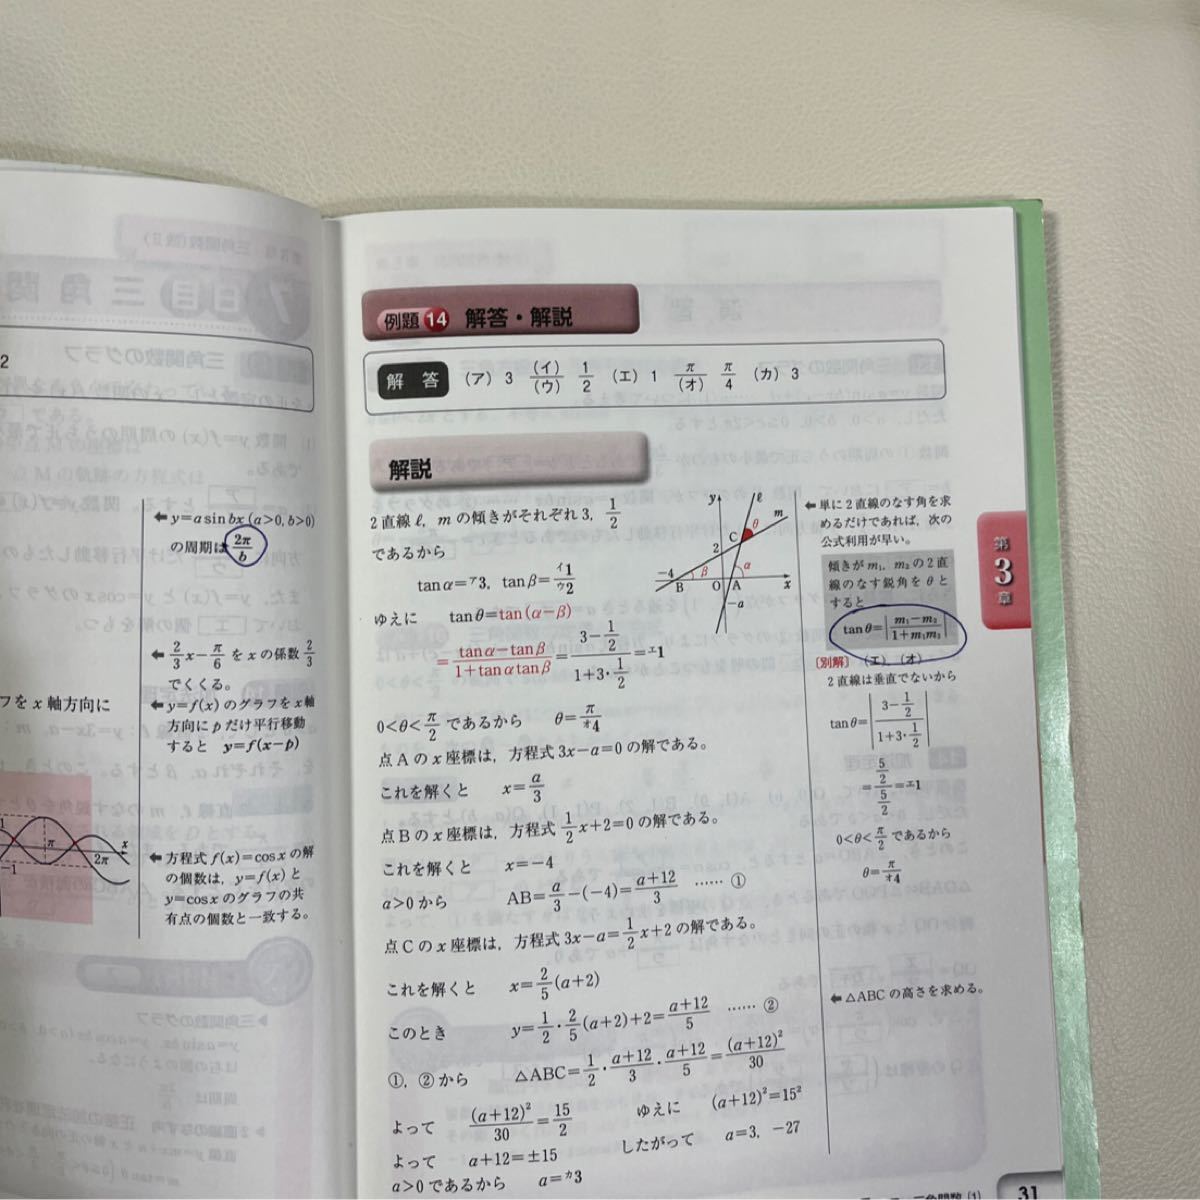 2
← y=a sin bx (a>0, b>0)
の周期は 2π/b
← 2/3 x − π/6 を x の係数 2/3
でくくる。
フを x 軸方向に
← y=f(x) のグラフを x 軸
方向に p だけ平行移動
すると y=f(x−p)
1
−1
π
2π
x
← 方程式 f(x)=cos x の解
の個数は，y=f(x) と
y=cos x のグラフの共
有点の個数と一致する。
例題 14 解答・解説
解答 (ア) 3 (イ)/(ウ) 1/2 (エ) 1 π/(オ) π/4 (カ) 3
解説
2直線 ℓ，m の傾きがそれぞれ 3，1/2
であるから
tanα=ア3，tanβ=イ1/ウ2
ゆえに tanθ=tan(α−β)
=(tanα−tanβ)/(1+tanα tanβ)=(3−1/2)/(1+3・1/2)=エ1
0<θ<π/2 であるから θ=π/オ4
点Aの x 座標は，方程式 3x−a=0 の解である。
これを解くと x=a/3
点Bの x 座標は，方程式 1/2 x+2=0 の解である。
これを解くと x=−4
a>0 から AB=a/3−(−4)=(a+12)/3 …… ①
点Cの x 座標は，方程式 3x−a=1/2 x+2 の解である。
これを解くと x=2/5(a+2)
このとき y=1/2・2/5(a+2)+2=(a+12)/5 …… ②
①，②から △ABC=1/2・(a+12)/3・(a+12)/5=(a+12)²/30
よって (a+12)²/30=15/2 ゆえに (a+12)²=15²
よって a+12=±15 したがって a=3，−27
a>0 であるから a=カ3
y
ℓ
m
θ
C
2
−4
β
α
B
O
A
x
−a
← 単に2直線のなす角を求
めるだけであれば，次の
公式利用が早い。
傾きが m₁，m₂ の2直
線のなす鋭角を θ と
すると
tanθ=|(m₁−m₂)/(1+m₁m₂)|
〔別解〕 (エ)，(オ)
2直線は垂直でないから
tanθ=|(3−1/2)/(1+3・1/2)|
=(5/2)/(5/2)=エ1
0<θ<π/2 であるから
θ=π/オ4
← △ABC の高さを求める。
第
3
章
三角関数 (1)
31